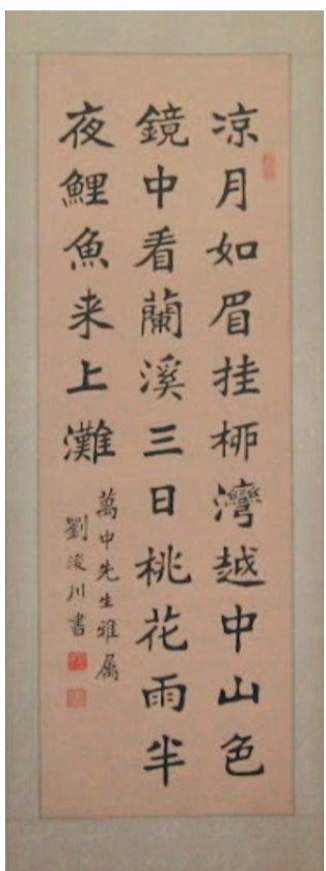 凉月如眉挂柳灣越中山色
鏡中看蘭溪三日桃花雨半
夜鯉魚来上灘
萬中先生雅属
劉浚川書